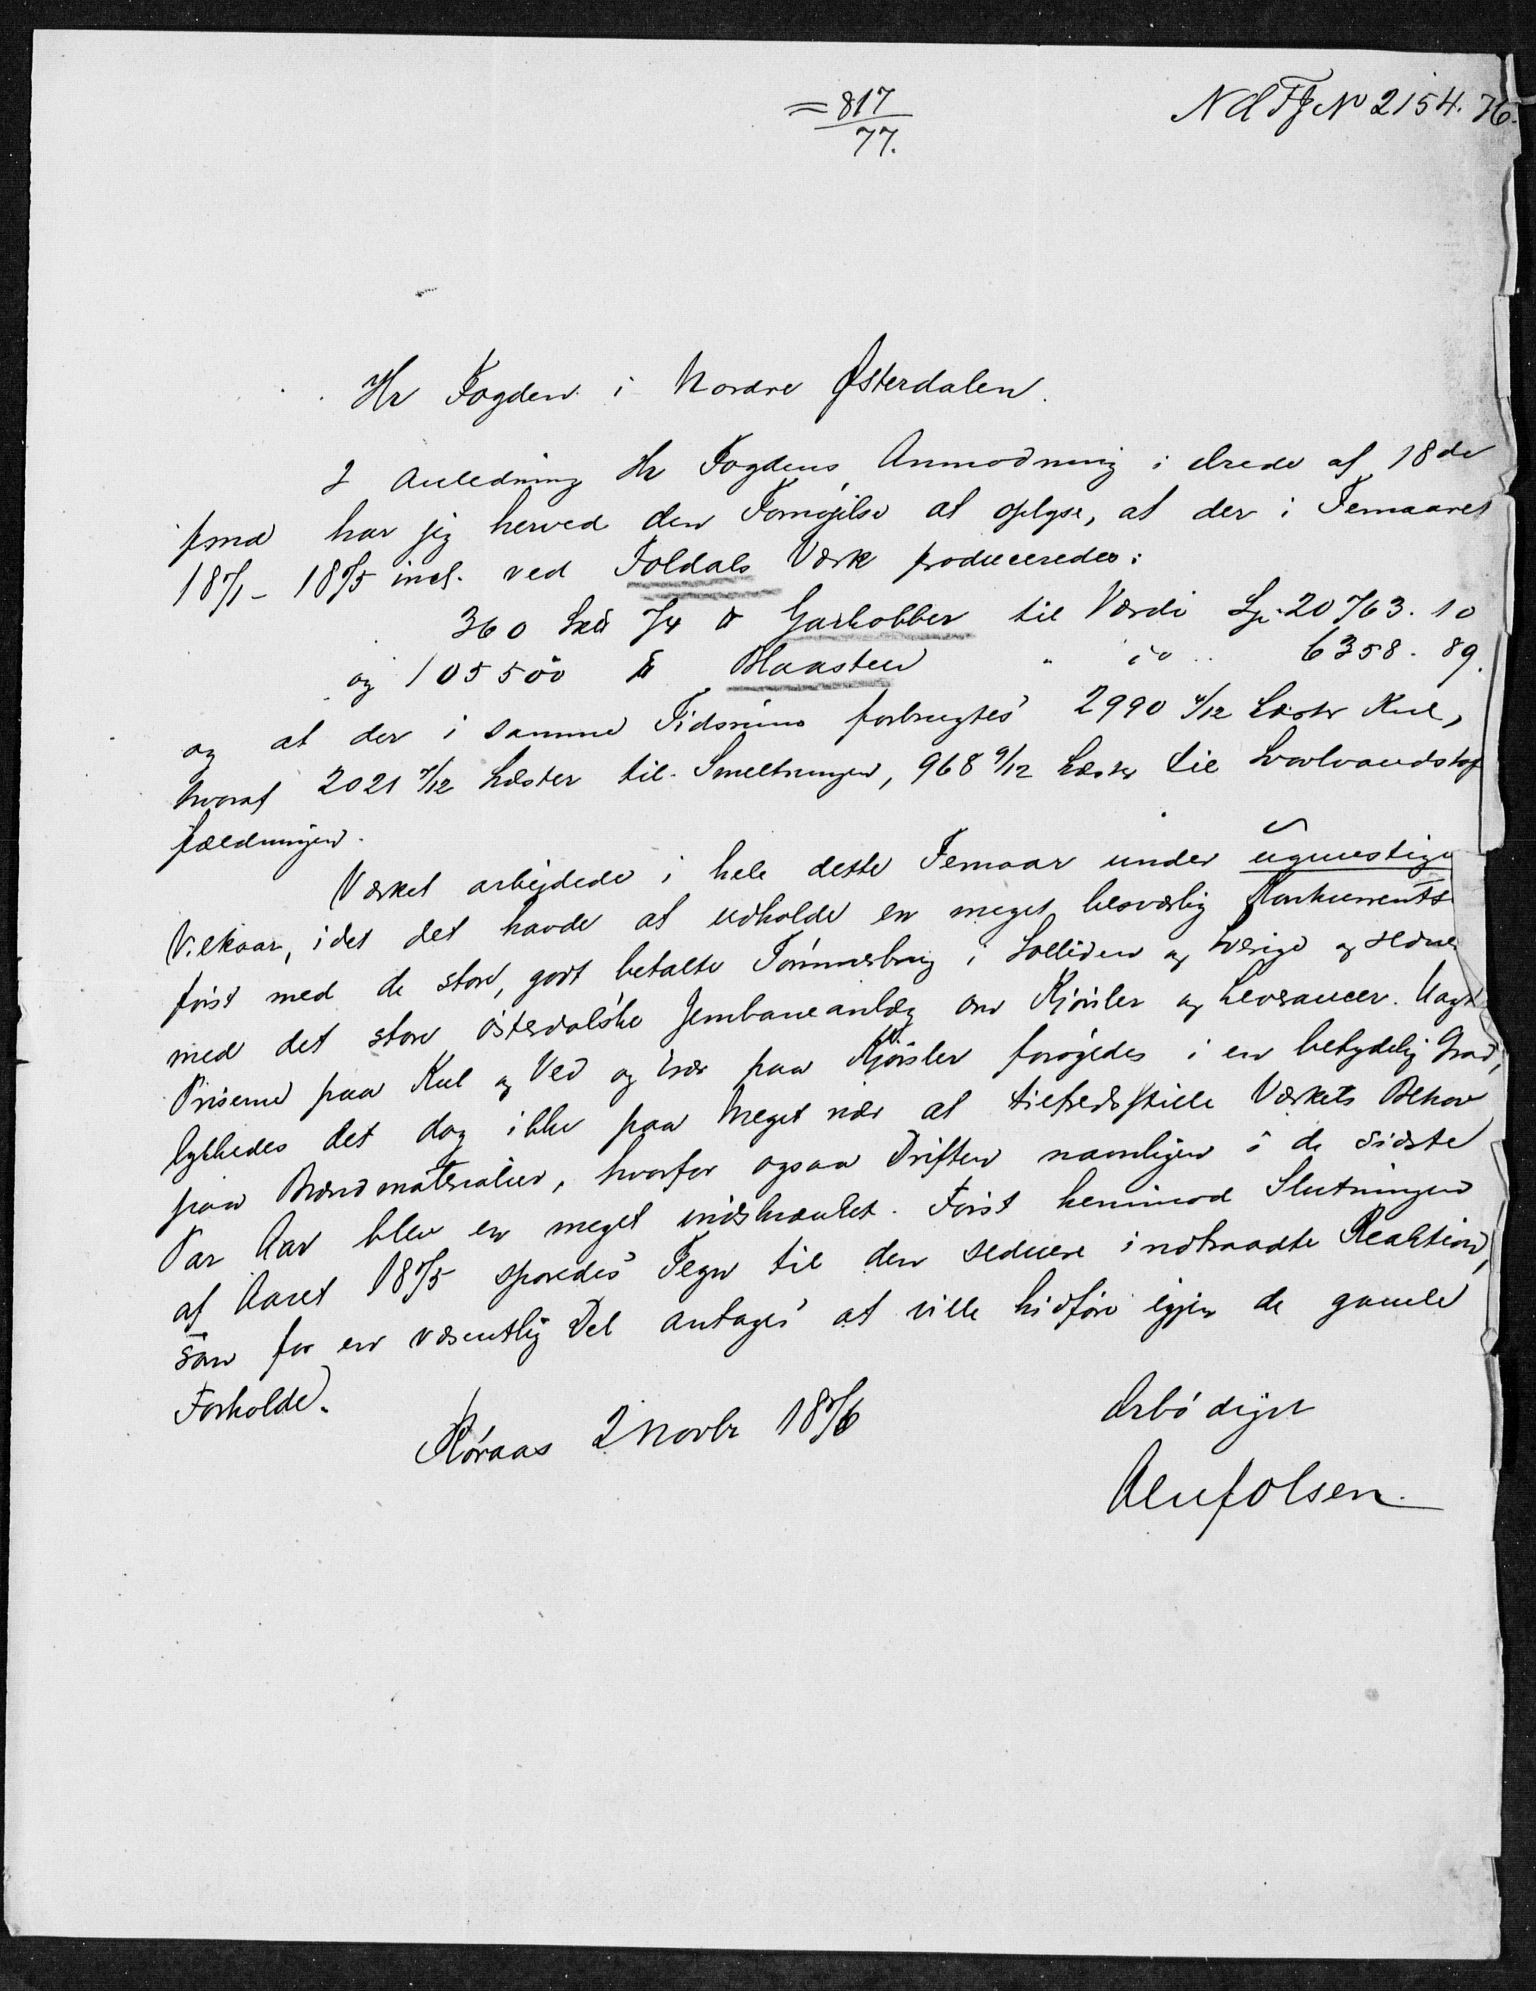 =817
77.
Nd Fg No 2154. 76.
Hr Fogden i Nordre Østerdalen.
I Anledning Hr Fogdens Anmodning i Brede af 18de
pmd har jeg herved den Fornøjelse at oplyse, at der i Femaaret
1871 - 1875 incl. ved Foldals Værk produceredes:
360 Skũ 74 ℔ Garkobber til Værdi Sp. 20763. 10
og 105500 ℔ Blaasten " io .. 6358. 89.
og at der i samme Tidsrum forbrugtes 2990 4/12 Læster Kul,
hvoraf 2021 7/12 Læster til Smeltningen, 968 9/12 Læster til Svovlvandstof
fældningen.
Værket arbejdede i hele dette Femaar under ugunstige
Vilkaar, idet det havde at udholde en meget besværlig Konkurrents
først med de store, godt betalte Tømmerbrug i Solliden og Sverige og sednere
med det store østerdalske Jernbaneanlæg om Kjørsler og Leverancer. Uagt
Priserne paa Kul og Ved og især paa Kjørsler forøgedes i en betydelig Grad,
lykkedes det dog ikke paa meget nær at tilfredsstille Værkets Behov
paa Brændmaterialier, hvorfor ogsaa Driften navnligen i de sidste
Par Aar blev en meget indskrænket. Først henimod Slutningen
af Aaret 1875 sporedes Tegn til den sednere indtraadte Reaktion,
som for en væsentlig Del antages at ville hidføre igjen de gamle
Forholde.
Røraas 2 Novbr 1876
Ærbødigst
Oluf Olsen.